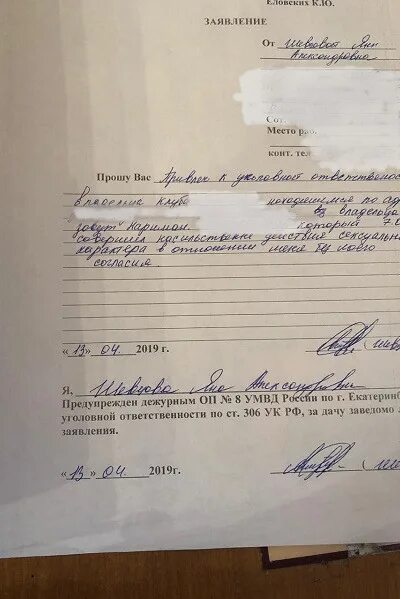 Еловских К.Ю.
ЗАЯВЛЕНИЕ
От Шевцовой Яны
Александровны
Сот.
Место раб.
конт. тел
Прошу Вас Привлеч к уголовной ответственнос
владельца клуба находишемся по ад
зовут Кариман. который 7.0
совершил насильственные действия сексуальн
характера в отношении меня без моего
согласия.
«13» 04. 2019 г.
Я, Шевцова Яна Александровна
Предупрежден дежурным ОП № 8 УМВД России по г. Екатеринб
уголовной ответственности по ст. 306 УК РФ, за дачу заведомо
заявления.
«13» 04 2019г.